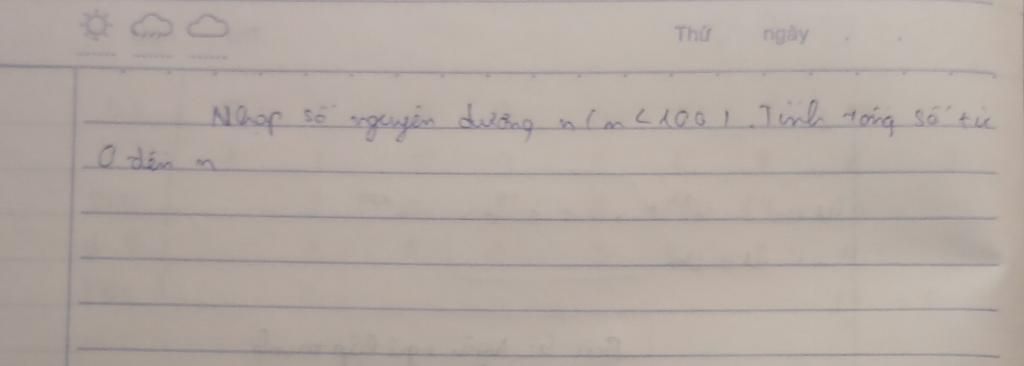 Thứ ngày
Nhập số nguyên dương n (n < 100). Tính tổng số từ
0 đến n